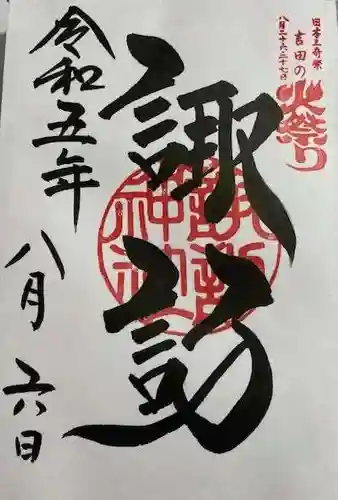 日本三奇祭
吉田の
火祭り
八月二十六・二十七日
諏訪
諏訪神社
令和五年
八月六日